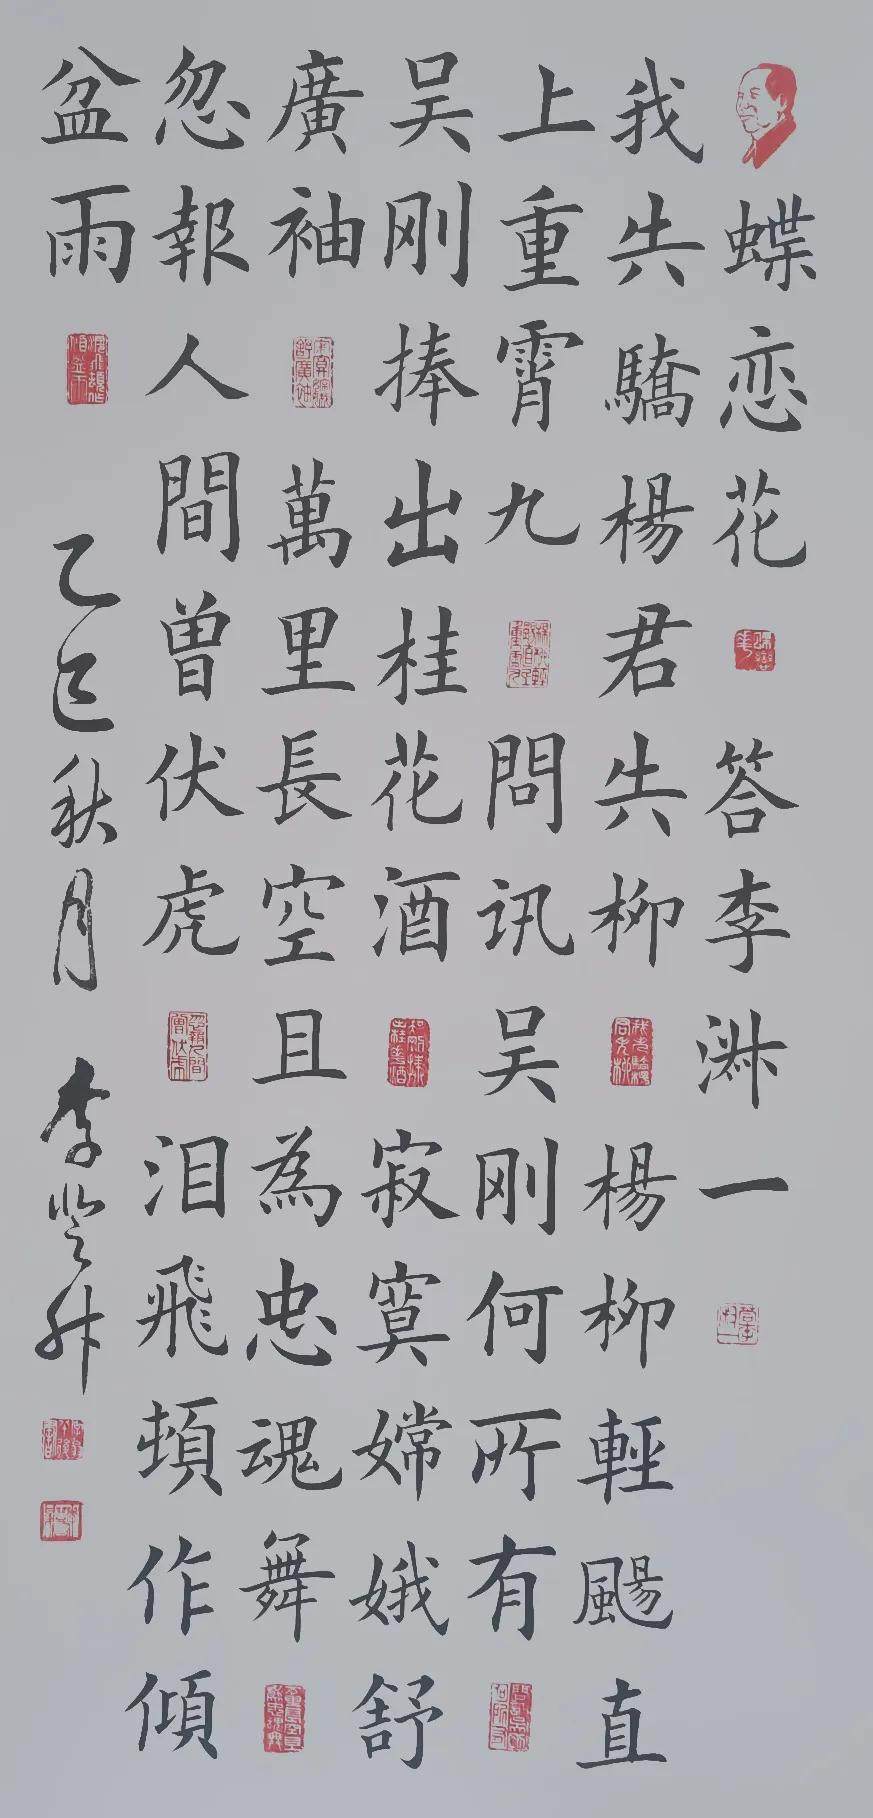 蝶恋花 答李淑一
我失驕楊君失柳 楊柳輕颺直
上重霄九 問讯吴刚何所有
吴刚捧出桂花酒 寂寞嫦娥舒
廣袖 萬里長空且為忠魂舞
忽報人間曾伏虎 泪飛頓作傾
盆雨
乙巳秋月 李